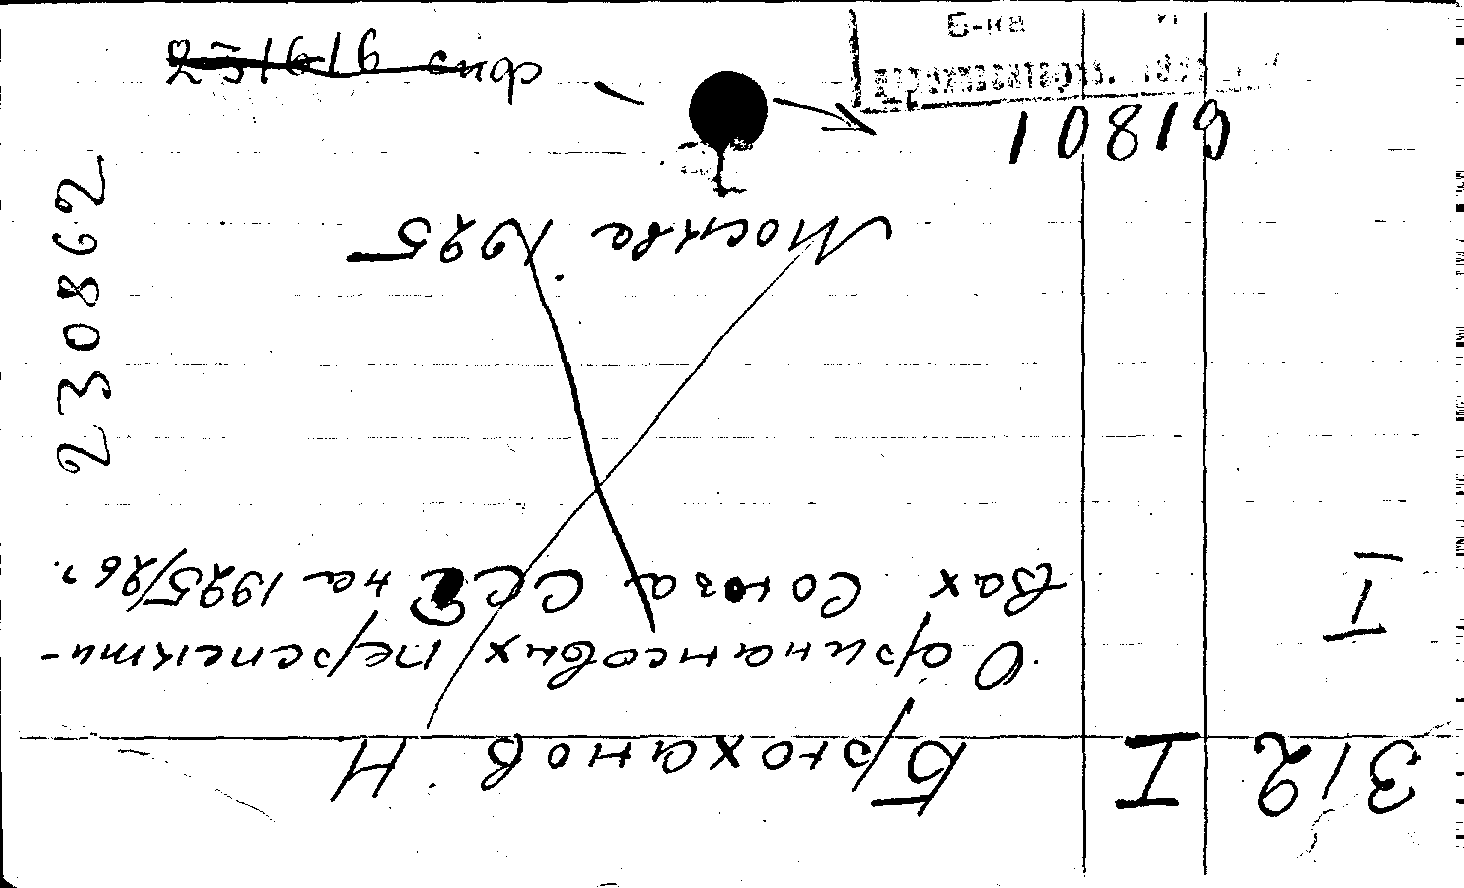 312 I Брюханов. Н
О финансовых перспекти-
I вах Союза ССР на 1925/26 г.
Москва 1925
230862
Б-ка
10819